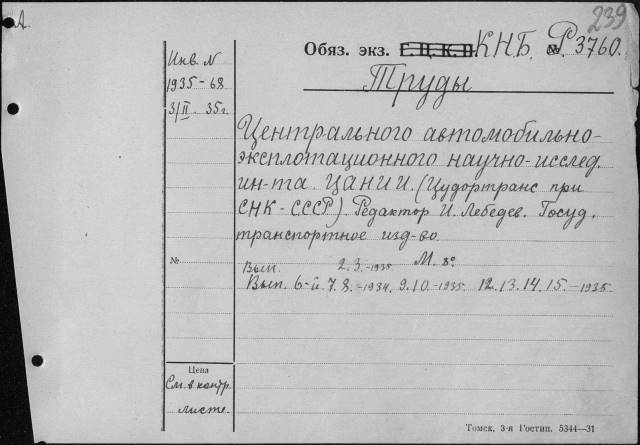 А.
239
Обяз. экз. Г. Ц. К. П. КНБ. № Р. 3760.
Инв. N
1935-68
3/II. 35 г.
Труды
Центрального автомобильно-
эксплотационного научно-исслед.
ин-та. ЦАНИИ. (Цудортранс при
СНК-СССР). Редактор И. Лебедев. Госуд.
транспортное изд-во
№
Вып. 2. 3. -1935 М. 8°
Вып. 6-й. 7. 8. -1934. 9. 10. -1935. 12. 13. 14. 15. -1935.
Цена
См. в контр.
листе.
Томск. 3-я Гостип. 5344—31